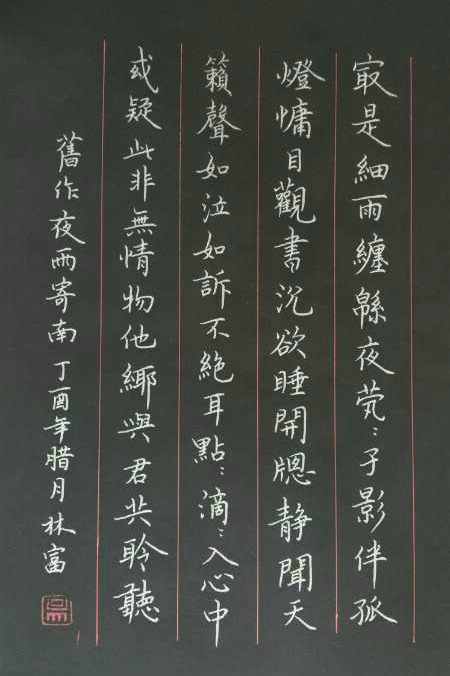 冣是細雨纏緜夜煢〻孑影伴孤
燈慵目觀書沉欲睡開牕静聞天
籟聲如泣如訴不絕耳點〻滴〻入心中
或疑此非無情物他鄉與君共聆聽
舊作夜雨寄南丁酉年腊月林富